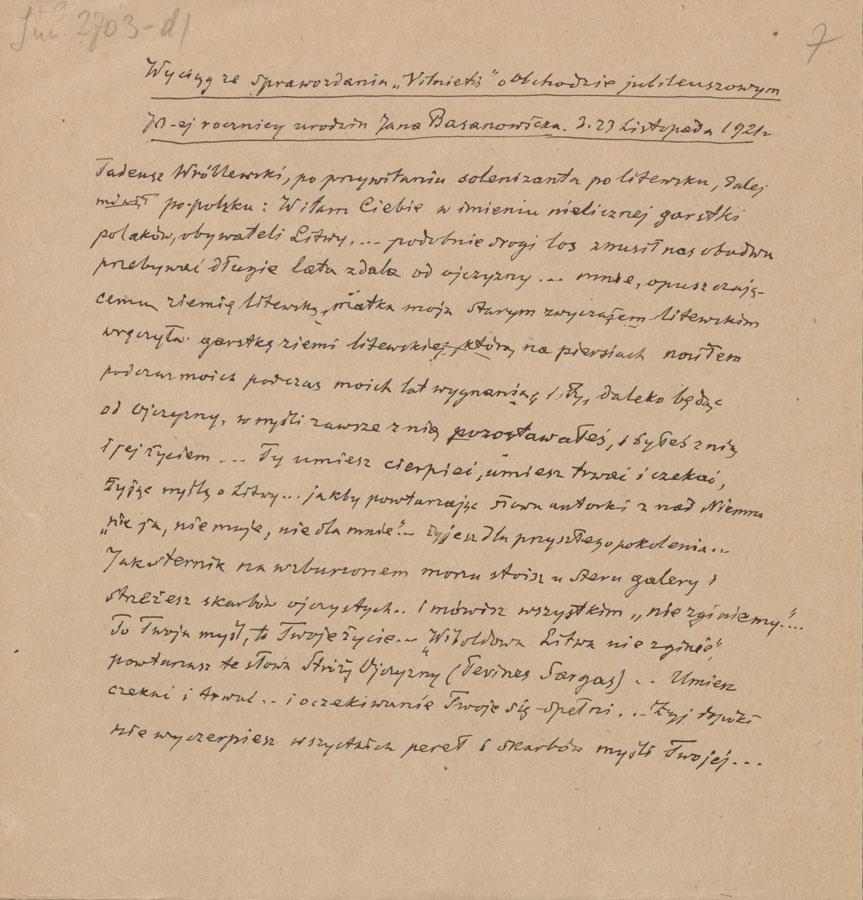 Inw. 2703-d1
7
Wyciąg ze sprawozdania „Vilnietis" o obchodzie jubileuszowym
70-ej rocznicy urodzin Jana Basanowicza. 23 Listopada 1921 r
Tadeusz Wróblewski, po przywitaniu solenizanta po litewsku, dalej
mówił po-polsku: Witam Ciebie w imieniu nielicznej garstki
polaków, obywateli Litwy.... podobnie srogi los zmusił nas obudwu
przebywać długie lata zdala od ojczyzny... mnie, opuszczają-
cemu ziemię litewską, matka moja starym zwyczajem litewskim
wręczyła garstkę ziemi litewskiej, którą na piersiach nosiłem
podczas moich podczas moich lat wygnania, i Ty, daleko będąc
od ojczyzny, w myśli zawsze z nią pozostawałeś, i byłeś z nią
i jej życiem... Ty umiesz cierpieć, umiesz trwać i czekać,
żyjąc myślą o Litwy... jakby powtarzając słowa autorki z nad Niemna
„nie ja, nie moje, nie dla mnie".. żyjesz dla przyszłego pokolenia...
Jak sternik na wzburzonem morzu stoisz u steru galery i
strzeżesz skarbów ojczystych.. i mówisz wszystkim „nie zginiemy."...
To Twoja myśl, to Twoje życie... „Witoldowa Litwa nie zginie",
powtarzasz te słowa Stróż Ojczyzny (Tevines Sargas)... Umiesz
czekać i trwać.. i oczekiwanie Twoje się spełni... Żyj dopóki
nie wyczerpiesz wszystkich pereł i skarbów myśli Twojej...